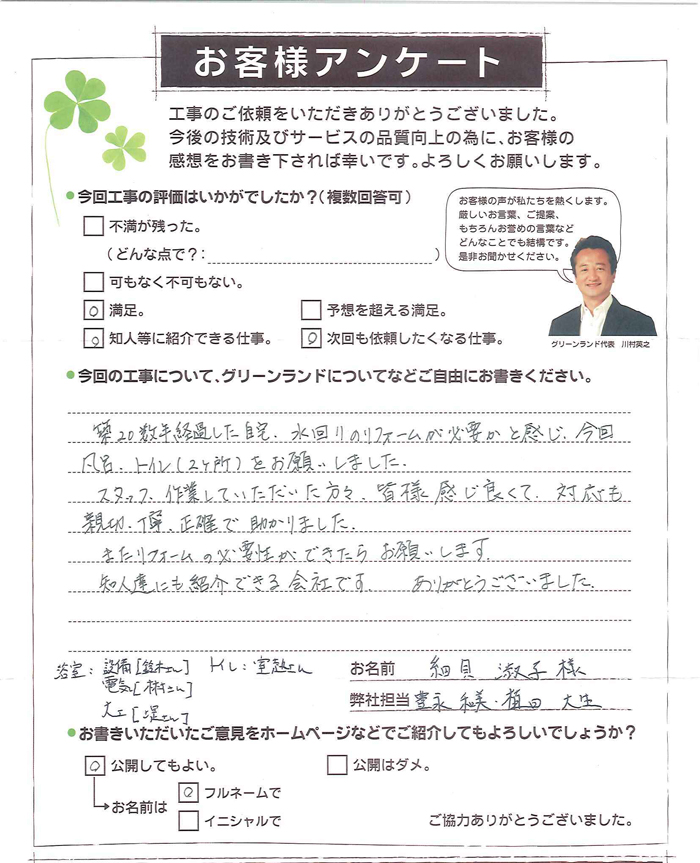 お客様アンケート
工事のご依頼をいただきありがとうございました。
今後の技術及びサービスの品質向上の為に、お客様の
感想をお書き下されば幸いです。よろしくお願いします。
今回工事の評価はいかがでしたか？(複数回答可)
不満が残った。
(どんな点で?: )
可もなく不可もない。
○ 満足。 予想を超える満足。
○ 知人等に紹介できる仕事。 ○ 次回も依頼したくなる仕事。
お客様の声が私たちを熱くします。
厳しいお言葉、ご提案、
もちろんお誉めの言葉など
どんなことでも結構です。
是非お聞かせください。
グリーンランド代表 川村英之
今回の工事について、グリーンランドについてなどご自由にお書きください。
築20数年経過した自宅、水回りのリフォームが必要かと感じ、今回
風呂、トイレ(2ヶ所)をお願いしました。
スタッフ、作業していただいた方々、皆様感じ良くて、対応も
親切、丁寧、正確で助かりました。
またリフォームの必要性ができたらお願いします。
知人達にも紹介できる会社です。 ありがとうございました。
浴室: 設備[鈴木さん] トイレ:
電気[林さん]
大工[堤さん]
お名前 細貝 淑子 様
弊社担当 豊永 和美・植田 大生
お書きいただいたご意見をホームページなどでご紹介してもよろしいでしょうか？
○ 公開してもよい。 公開はダメ。
お名前は ○ フルネームで
イニシャルで
ご協力ありがとうございました。